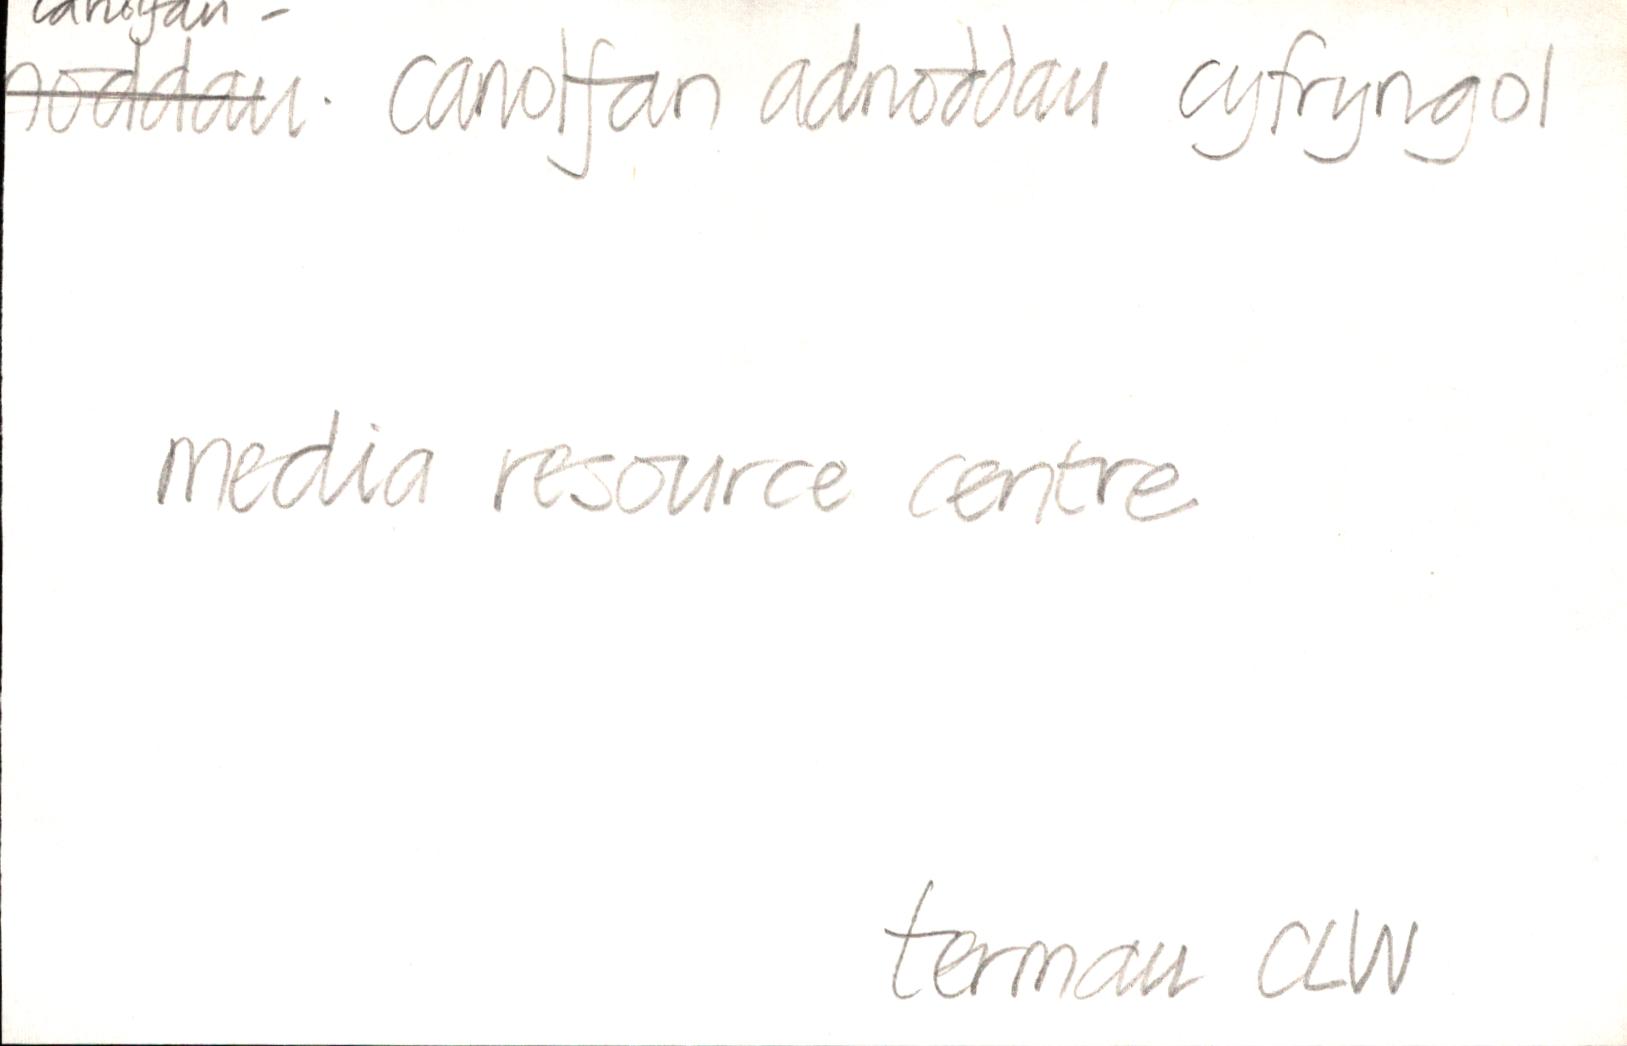 canolfan -
noddau. canolfan adnoddau cyfryngol
media resource centre
termau CLW